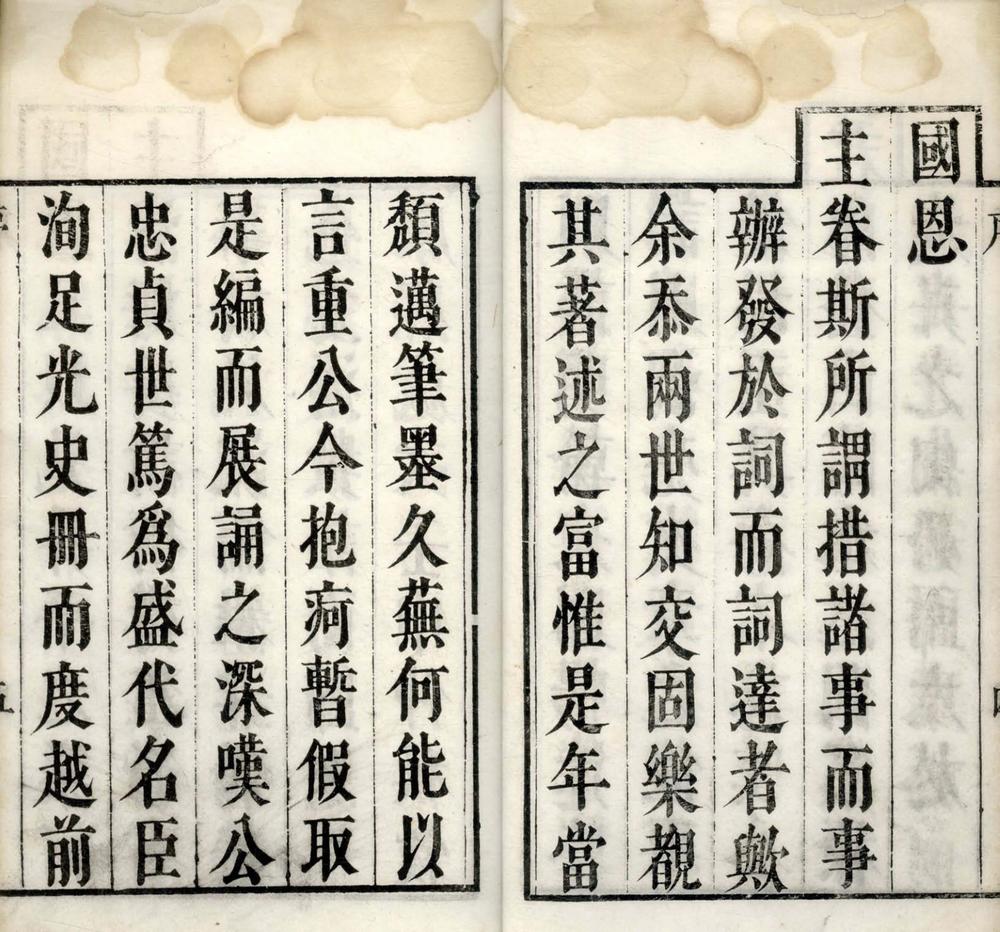 國恩
主眷斯所謂措諸事而事
辦發於詞而詞達者歟
余忝兩世知交固樂覩
其著述之富惟是年當
頹邁筆墨久蕪何能以
言重公今抱疴暫假取
是編而展誦之深嘆公
忠貞世篤爲盛代名臣
洵足光史冊而度越前